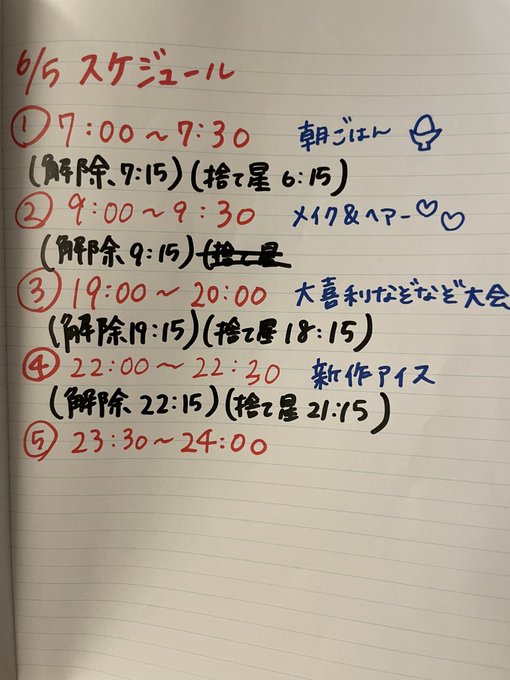 6/5 スケジュール
① 7:00～7:30 朝ごはん
(解除、7:15)(捨て星 6:15)
② 9:00～9:30 メイク&ヘアー♡♡
(解除、9:15)(捨て星
③ 19:00～20:00 大喜利なぞなぞ大会
(解除19:15)(捨て星 18:15)
④ 22:00～22:30 新作アイス
(解除、22:15)(捨て星 21:15)
⑤ 23:30～24:00